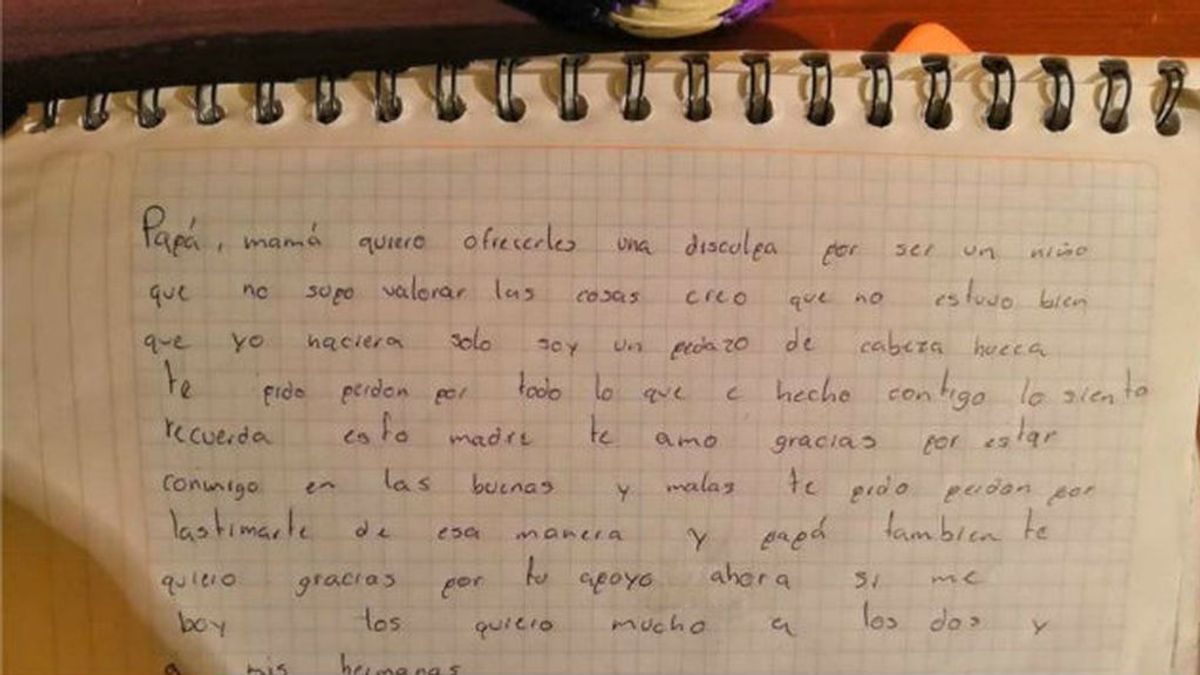 Papá, mamá quiero ofrecerles una disculpa por ser un niño
que no supo valorar las cosas creo que no estuvo bien
que yo naciera solo soy un pedazo de cabeza hueca
te pido perdon por todo lo que e hecho contigo lo siento
recuerda esto madre te amo gracias por estar
conmigo en las buenas y malas te pido perdon por
lastimarte de esa manera y papá tambien te
quiero gracias por tu apoyo ahora si me
boy los quiero mucho a los dos y
a mis hermanas